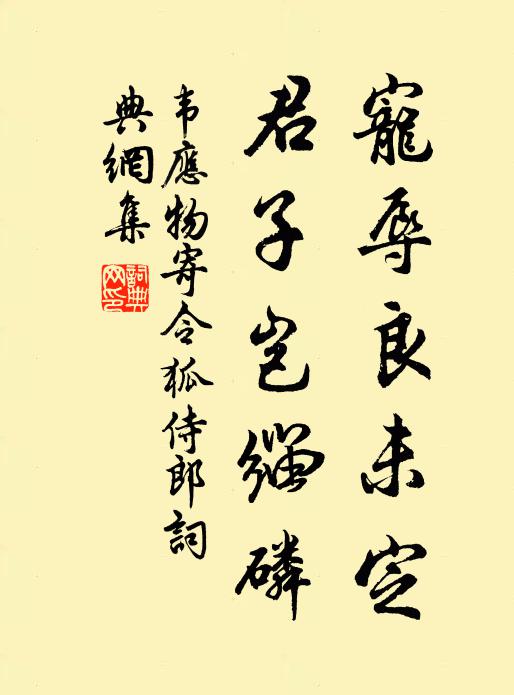 寵辱良未定
君子岂缁磷
韦應物寄令狐侍郎詞
典網集
詞典网印